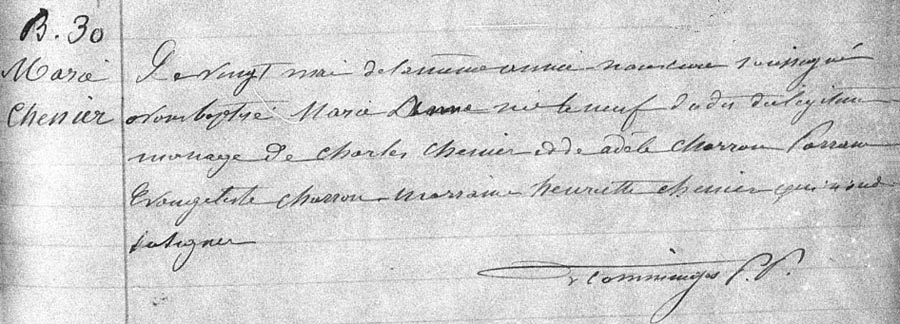 B. 30
Marie
Chenier
Le vingt mai de la même année nous curé soussigné
avons baptisé Marie Anne née le neuf du dit du légitime
mariage de Charles Chenier et de adèle Charron Parrain
Evangeliste Charron marraine henriette chenier qui n'ont
su signer
Comminges P. P.